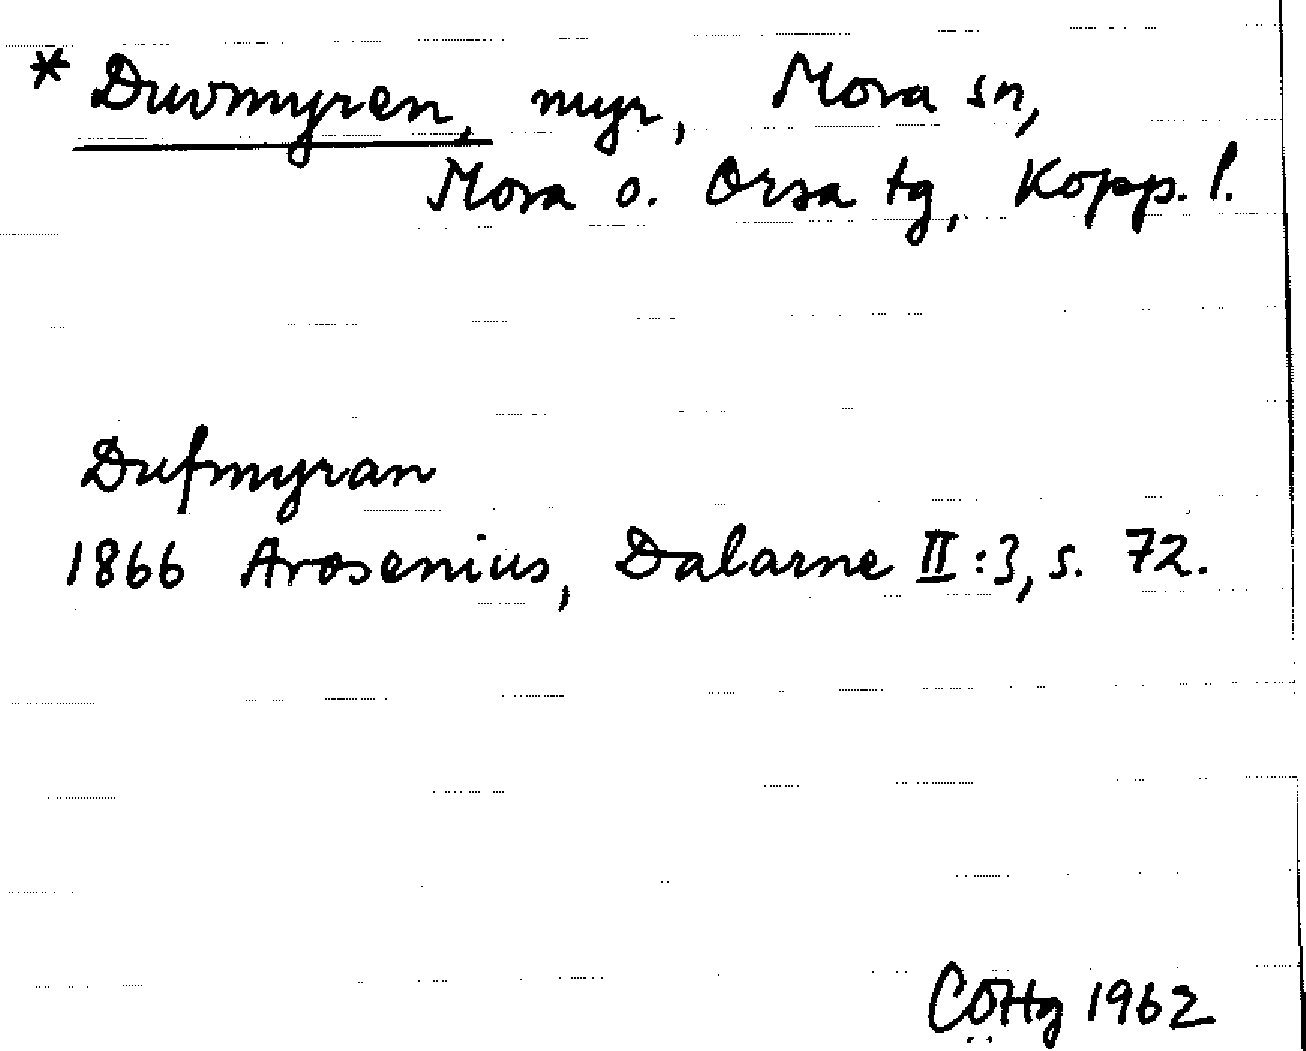 * Duvmyren, myr, Mora sn,
Mora o. Orsa tg, Kopp. l.
Dufmyran
1866 Arosenius, Dalarne II:3, s. 72.
1962